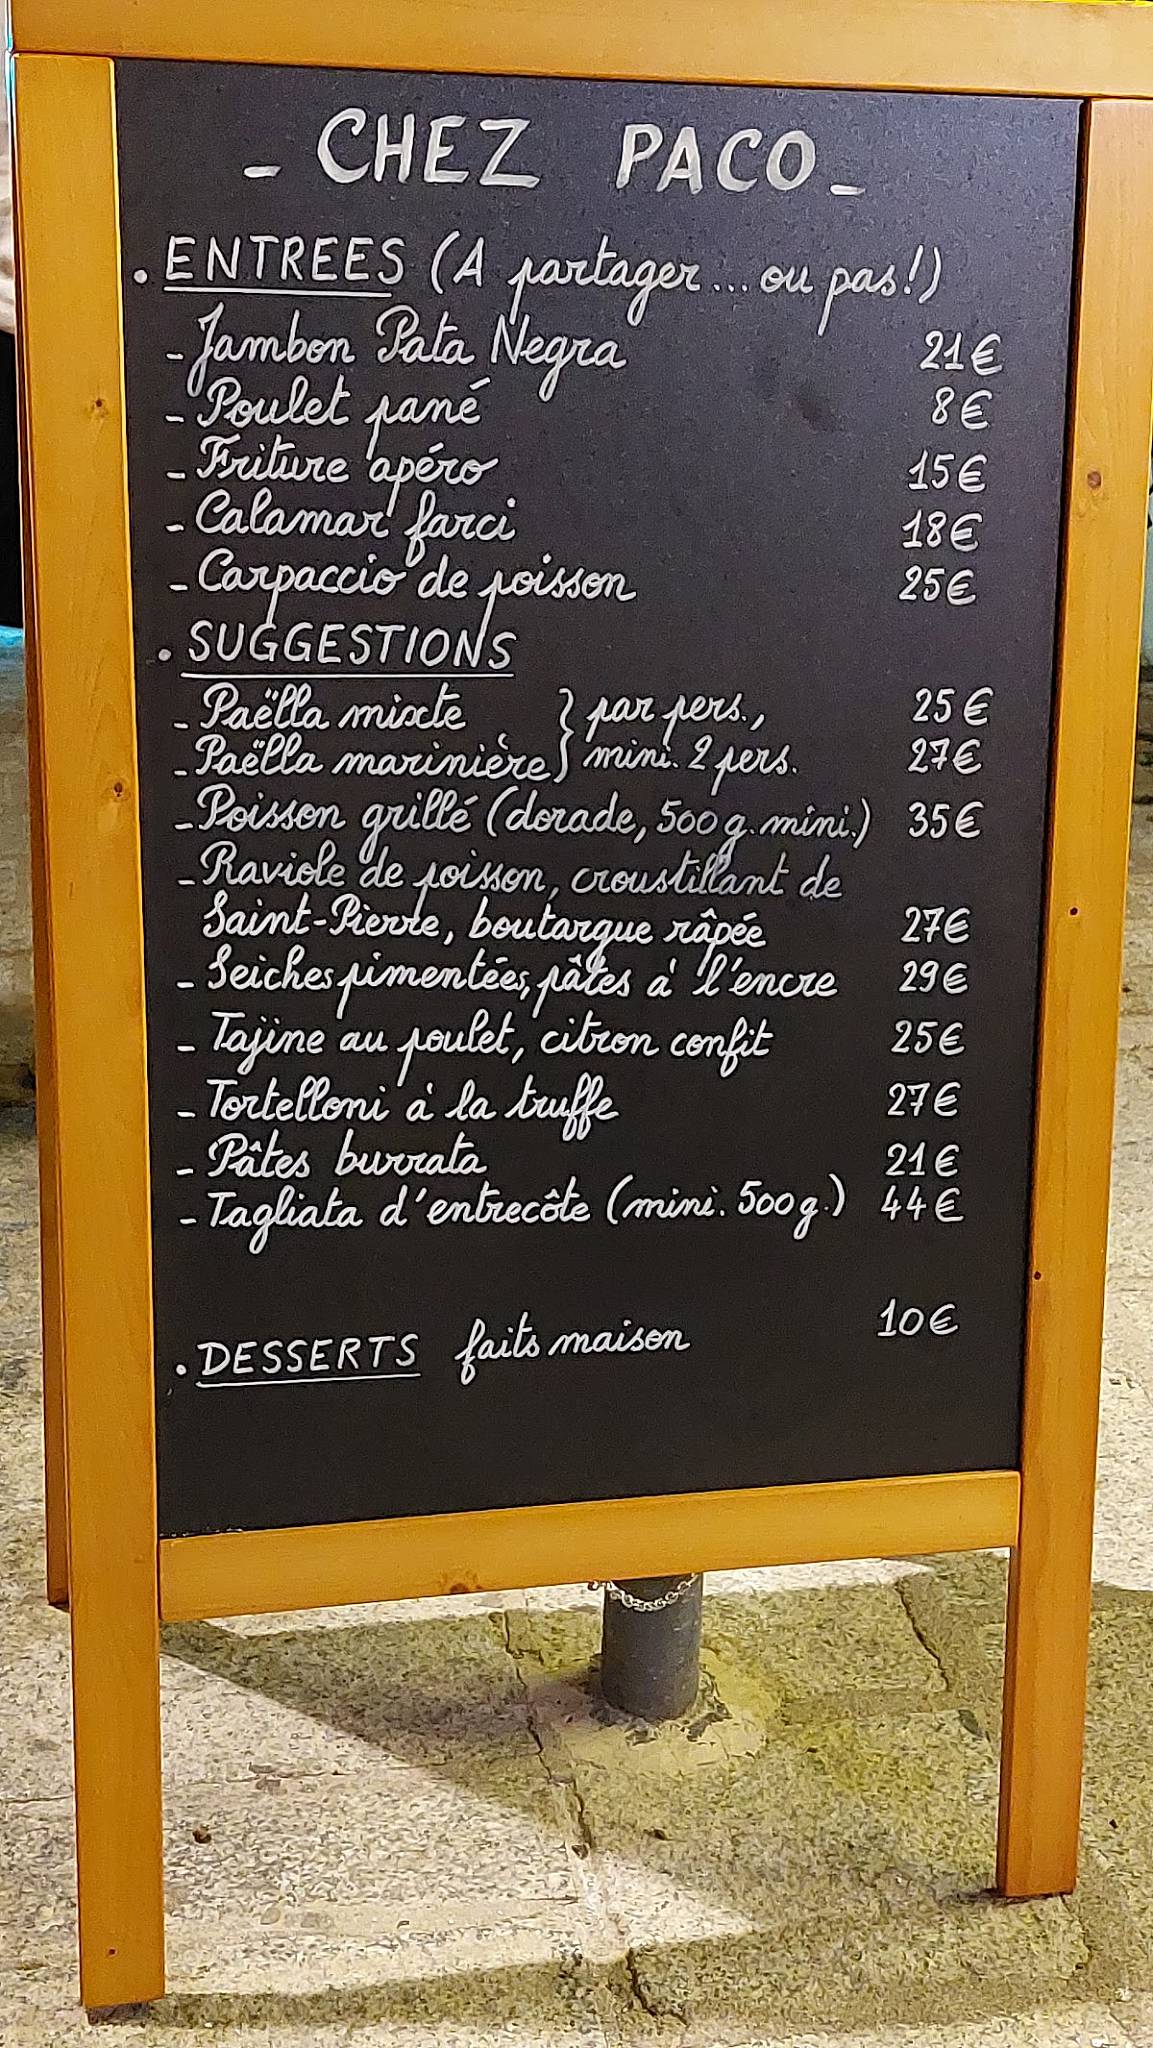 - CHEZ PACO -
. ENTREES (A partager... ou pas!)
- Jambon Pata Negra 21€
- Poulet pané 8€
- Friture apéro 15€
- Calamar farci 18€
- Carpaccio de poisson 25€
. SUGGESTIONS
- Paëlla mixte } par pers., 25€
- Paëlla marinière } mini. 2 pers. 27€
- Poisson grillé (dorade, 500 g. mini.) 35€
- Raviole de poisson, croustillant de
Saint-Pierre, boutargue râpée 27€
- Seiches pimentées, pâtes à l'encre 29€
- Tajine au poulet, citron confit 25€
- Tortelloni à la truffe 27€
- Pâtes burrata 21€
- Tagliata d'entrecôte (mini. 500 g.) 44€
. DESSERTS faits maison 10€